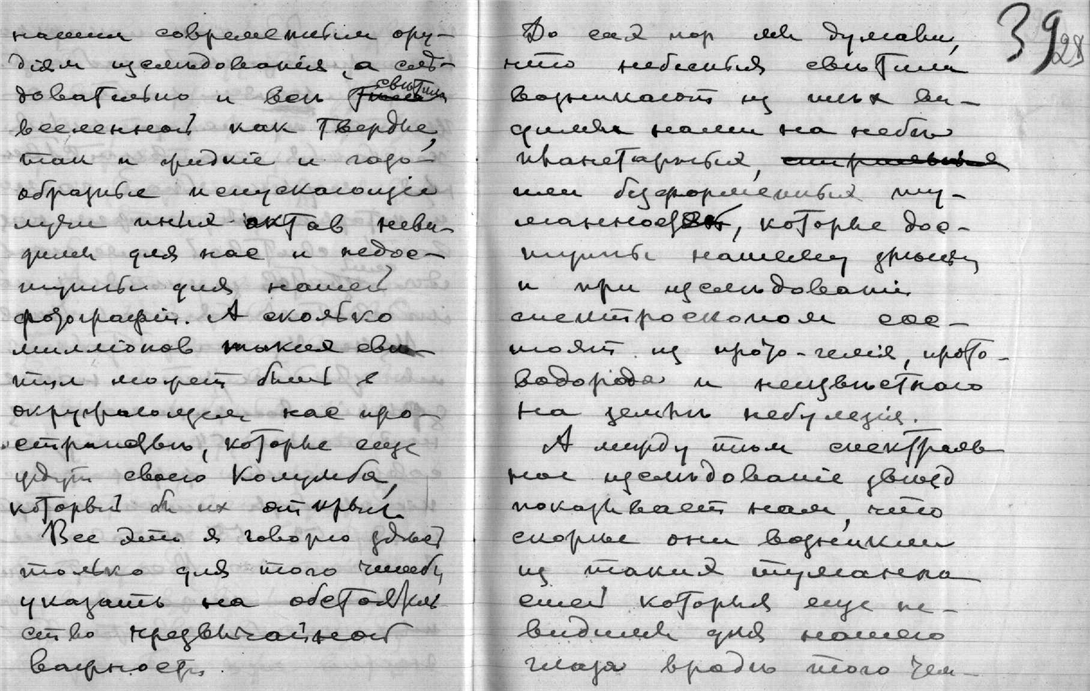 нашим современным ору-
діям изслѣдованія, а слѣ-
довательно и всѣ свѣтила
вселенной как твердые,
так и жидкіе и газо-
образные испускающіе
лучи иных октав неви-
димы для нас и недос-
тупны для нашей
фотографіи. А сколько
милліонов таких свѣ-
тил может быть в
окружающем нас про-
странствѣ, которые еще
ждут своего Колумба,
который бы их открыл.
Все это я говорю здѣсь
только для того чтобы
указать на обстоятель
ство чрезвычайной
важности.
До сих пор мы думали,
что небесныя свѣтила
возникают из тѣх ви-
димых нами на небѣ
планетарных, спиральных
или безформенных ту-
манностей, которые дос-
тупны нашему зрѣнію
и при изслѣдованіи
спектроскопом сос-
тоят из прото-гелія, прото-
водорода и неизвѣстнаго
на землѣ небулезія.
А между тѣм спектраль
ное изслѣдованіе звѣзд
показывает нам, что
скорѣе они возникли
из таких туманно
стей которыя еще не-
видимы для нашего
глаза вродѣ того чем-
39
28